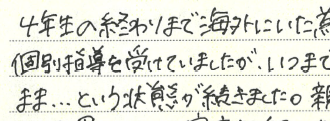 4年生の終わりまで海外にいた為
個別指導を受けていましたが、いつまで
まま…という状態が続きました。親